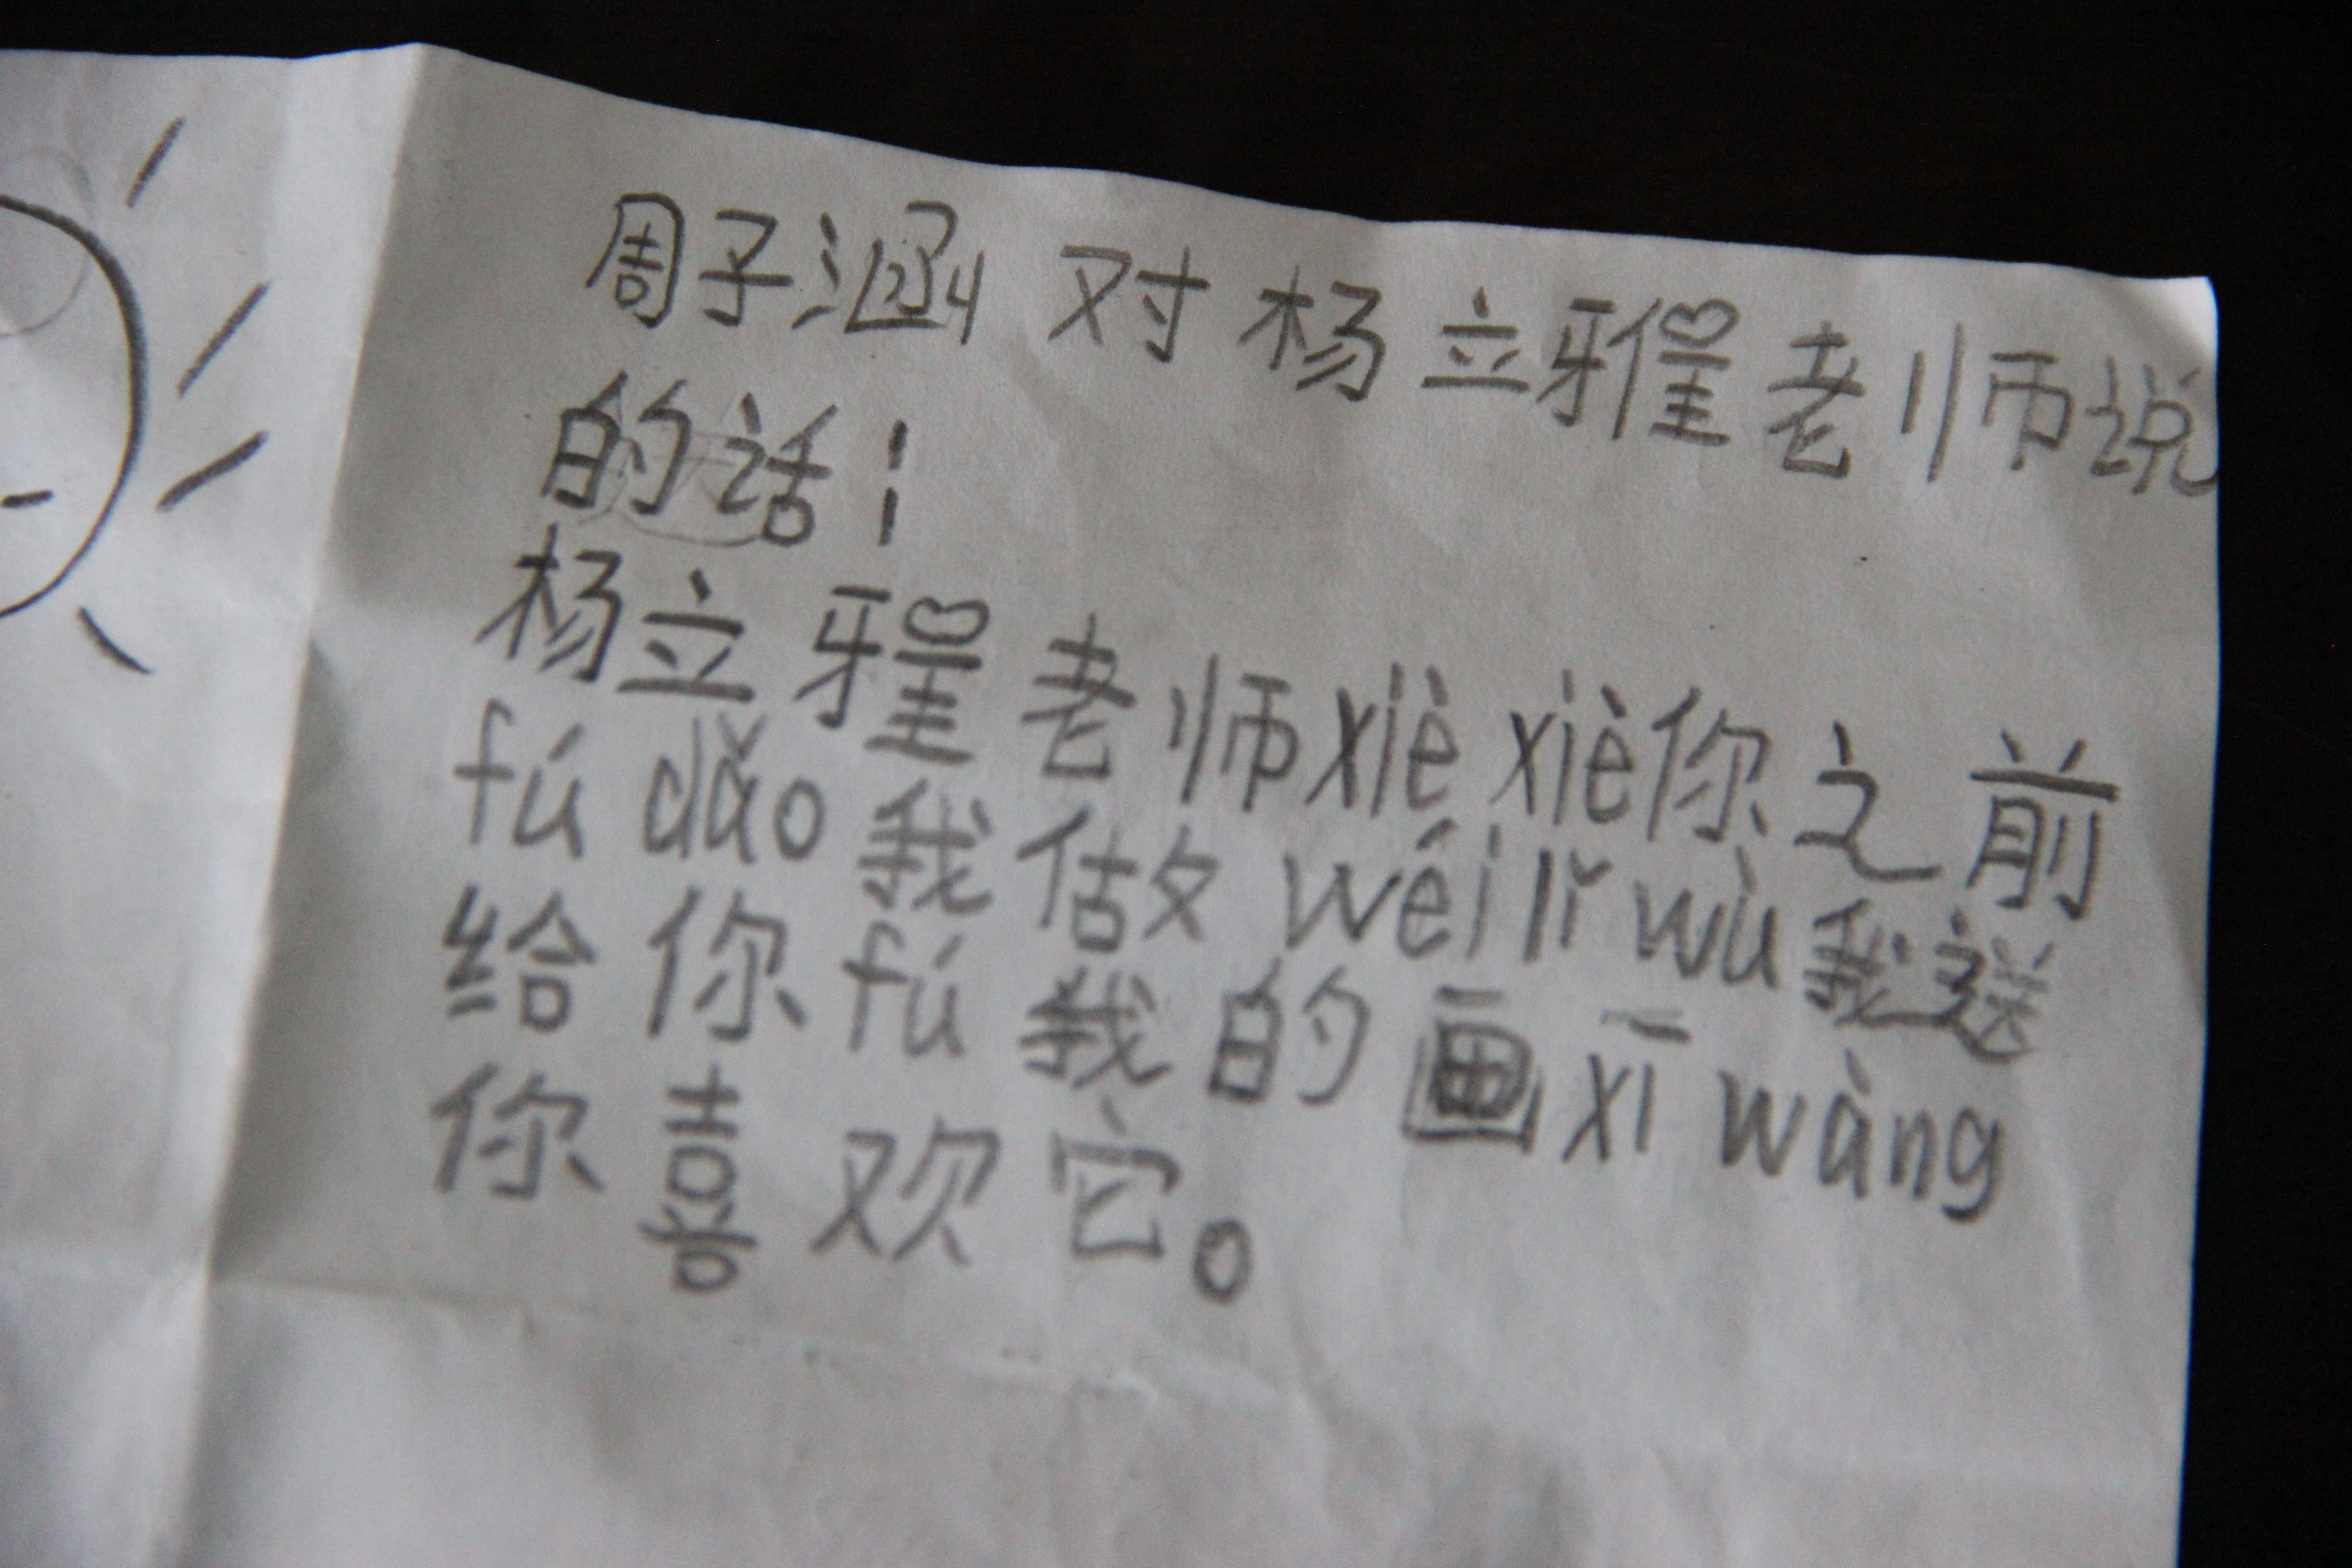 周子涵 对 杨立雅老师说
的话：
杨立雅老师xiè xiè你之前
fú dǎo 我做 wéi lǐ wù 我送
给你 fú 我的画 xī wàng
你喜欢它。